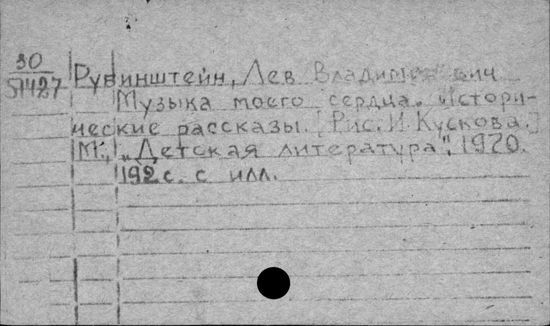 30
51427
Рубинштейн, Лев Владимирович
Музыка моего сердца. Истори-
ческие рассказы. [Рис. И. Кускова.]
М., „Детская литература", 1970.
192 с. с илл.